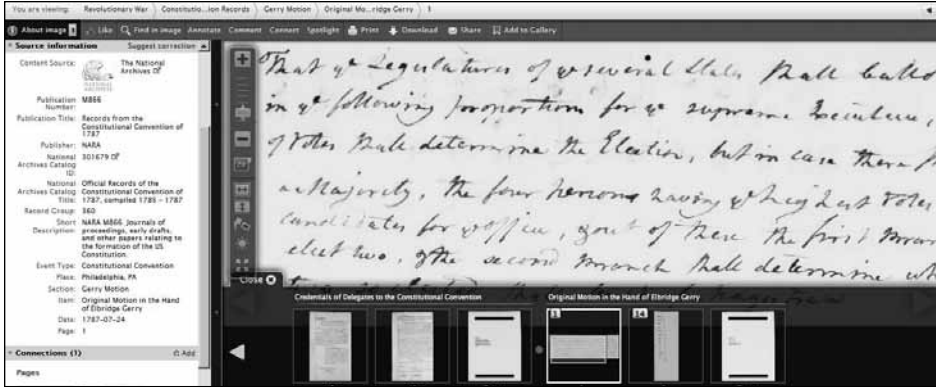 You are viewing: Revolutionary War Constitutio...ion Records Gerry Motion Original Mo...ridge Gerry 1
About image Like Find in image Annotate Comment Connect Spotlight Print Download Share Add to Gallery
Source information Suggest correction
Content Source: The National Archives
Publication Number: M866
Publication Title: Records from the Constitutional Convention of 1787
Publisher: NARA
National Archives Catalog ID: 301679
National Archives Catalog Title: Official Records of the Constitutional Convention of 1787, compiled 1785 - 1787
Record Group: 360
Short Description: NARA M866. Journals of proceedings, early drafts, and other papers relating to the formation of the US Constitution.
Event Type: Constitutional Convention
Place: Philadelphia, PA
Section: Gerry Motion
Item: Original Motion in the Hand of Elbridge Gerry
Date: 1787-07-24
Page: 1
Connections (1) Add
Pages
That ye Legislatures of ye several States shall ballo
in ye following proportion for ye supreme Executive,
of Votes shall determine the Election, but in case there
a Majority, the four persons having ye highest Votes
candidates for ye office, & out of these the first
elect two, & the second branch shall determine
Close
Credentials of Delegates to the Constitutional Convention Original Motion in the Hand of Elbridge Gerry
1 14